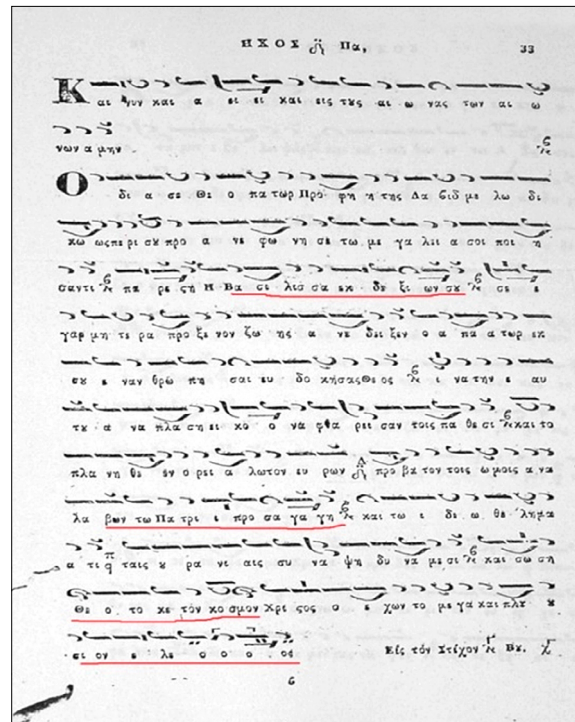 ΗΧΟΣ Πα, 33
Και νυν και α ει ει και εις τους αι ω νας των αι ω
νων α μην
Ο δι α σε Θε ο πα τωρ Προ φη η της Δα βιδ με λω δι
κω ως περι σου προ α νε φω νη σε τω με γα λει α σοι ποι η
σαντι πα ρε ςη Η Βα σι λισ σα εκ δε ξι ων σου σε ε
γαρ μη τε ρα προ ξε νον ζω ης α νε δει ξεν ο α πα α τωρ εκ
σου ε ναν θρω πη σαι ευ δο κησας Θε ος ι να την ε αυ
του α να πλα ση ει κο ο να φθα ρει σαν τοις πα θε σι και το
πλα νη θε εν ο ρει α λωτον ευ ρων προ βα τον τοις ω μοις α να
λα βων τω Πα τρι ι προ σα γα γη και τω ι δι ω θε λημα
α τι ταις ου ρα νι αις συ να ψη δυ να με σι και σω ση
Θε ο το κε τον κο σμον Χρι ςος ε χων το με γα και πλου ου
σι ον ε λε ο ο ο ος Εις τόν Στίχον Βυ.
6